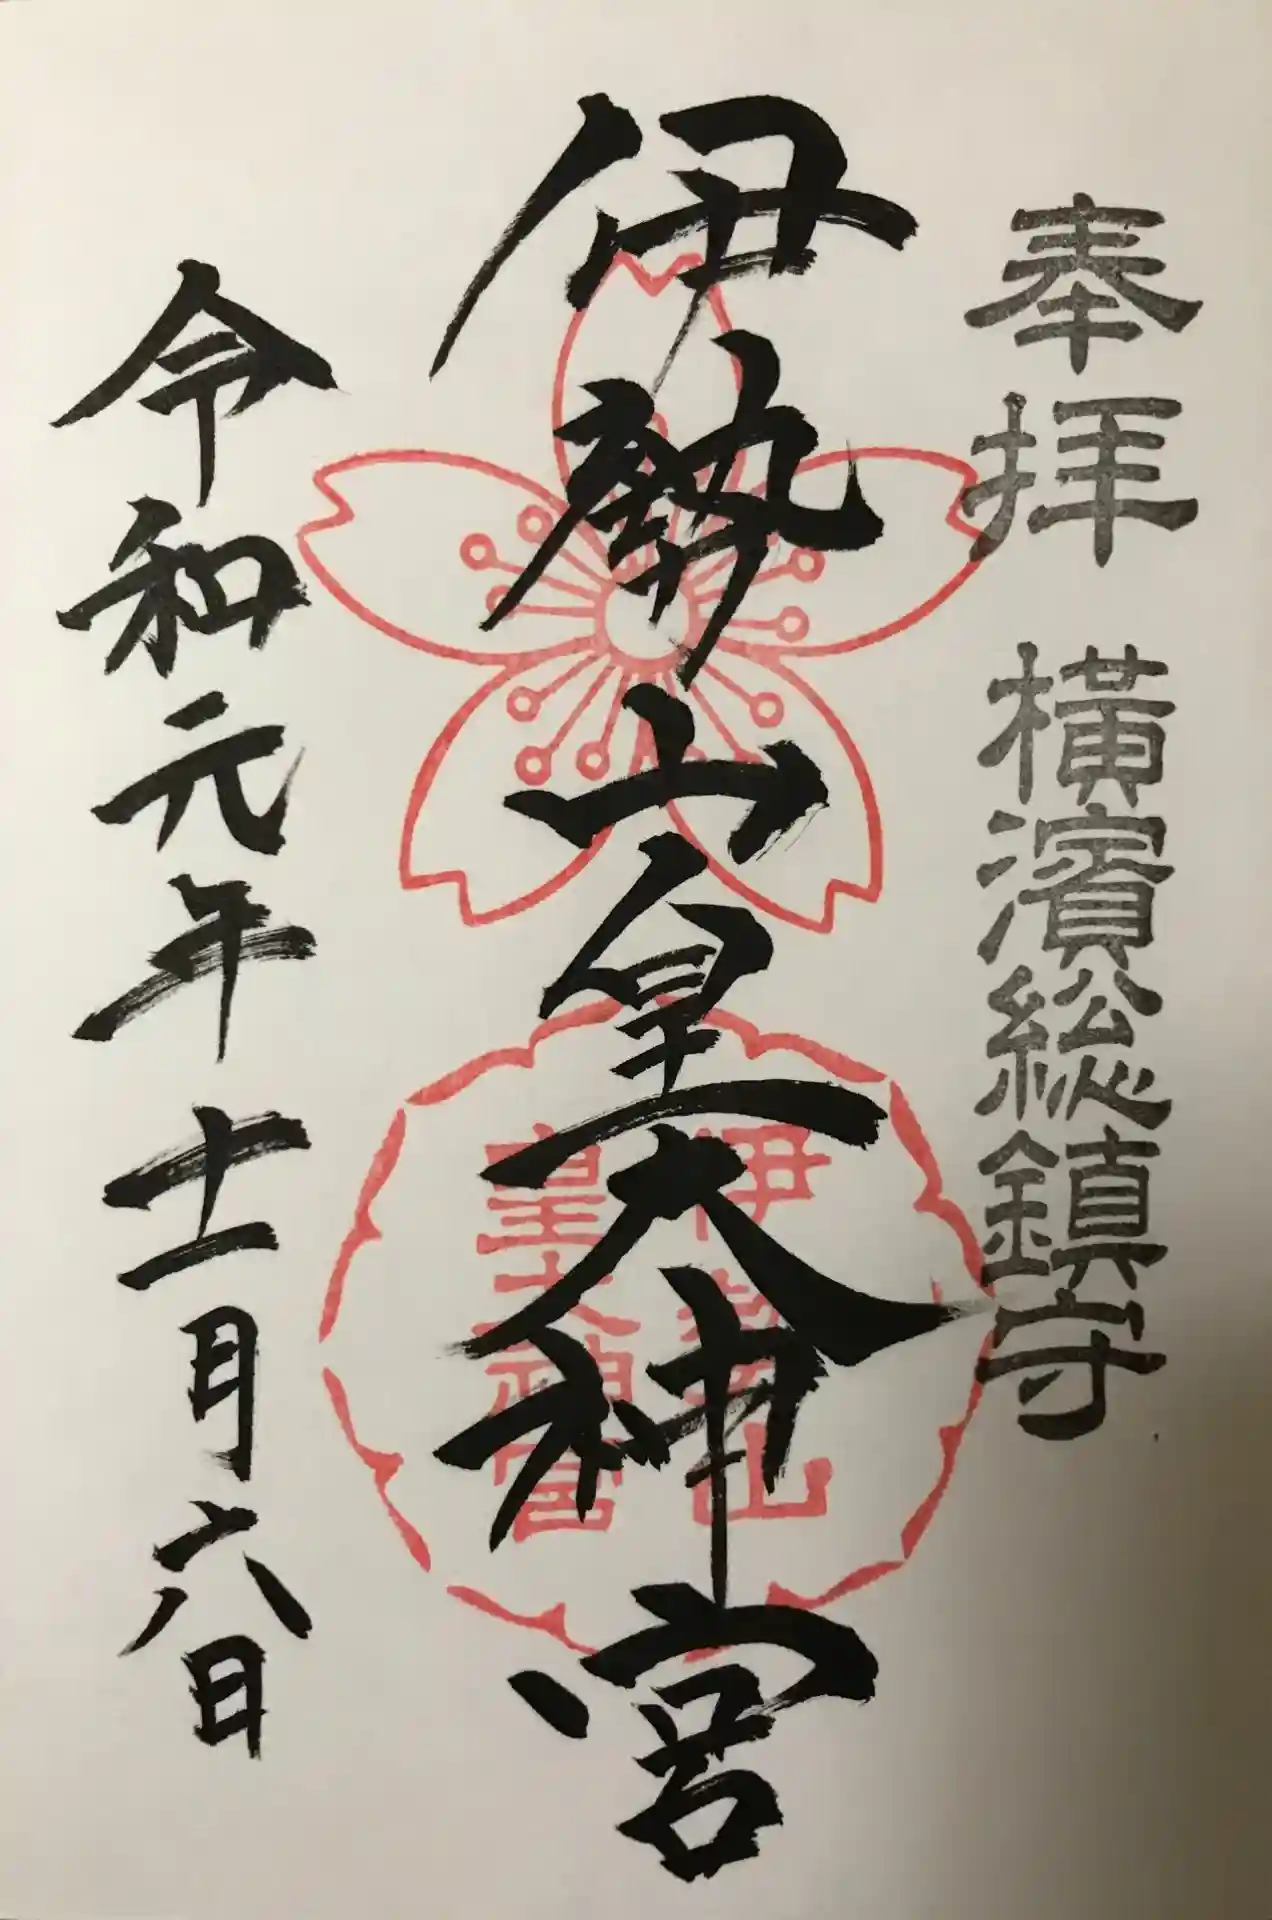 奉拝 横濱総鎮守
伊勢山皇大神宮
伊勢山
皇大神宮
令和元年十一月六日